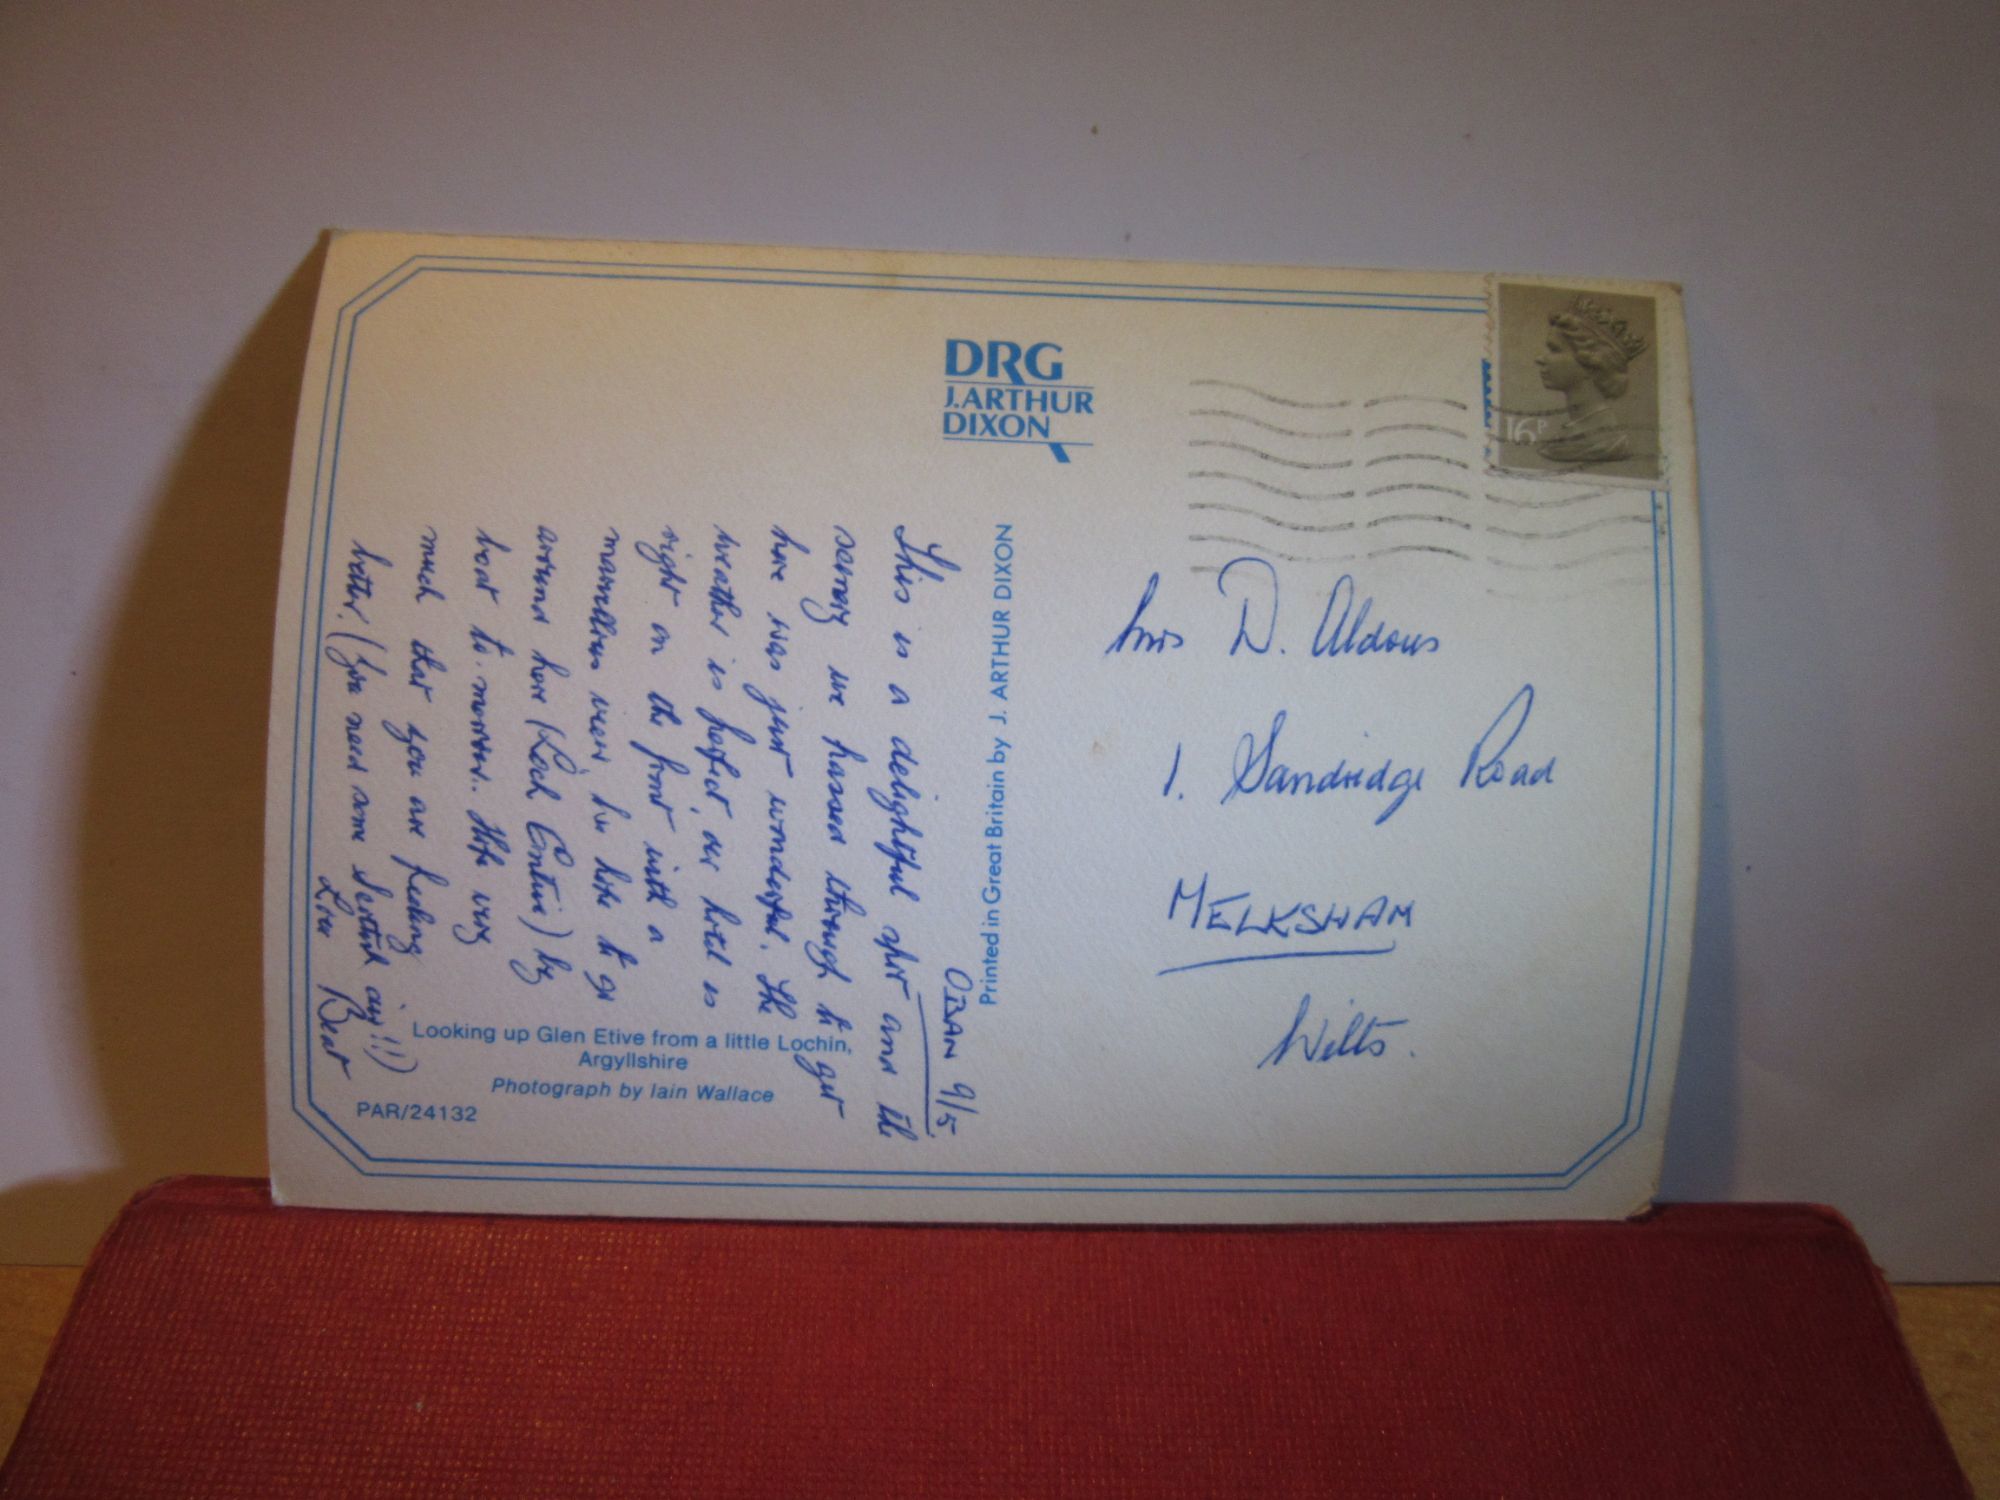 DRG
J.ARTHUR
DIXON
OBAN 9/5
This is a delightful spot and the
scenery we passed through to get
here was just wonderful. The
weather is perfect, our hotel is
right on the front with a
marvellous view, we hope to go
around here (Loch Contin) by
boat to-morrow. Hope very
much that you are feeling
better. (You need some Scottish air!!)
Love Beat
Looking up Glen Etive from a little Lochin,
Argyllshire
Photograph by Iain Wallace
PAR/24132
Printed in Great Britain by J. ARTHUR DIXON
16P
Mrs D. Aldous
1. Sandridge Road
MELKSHAM
Wilts.